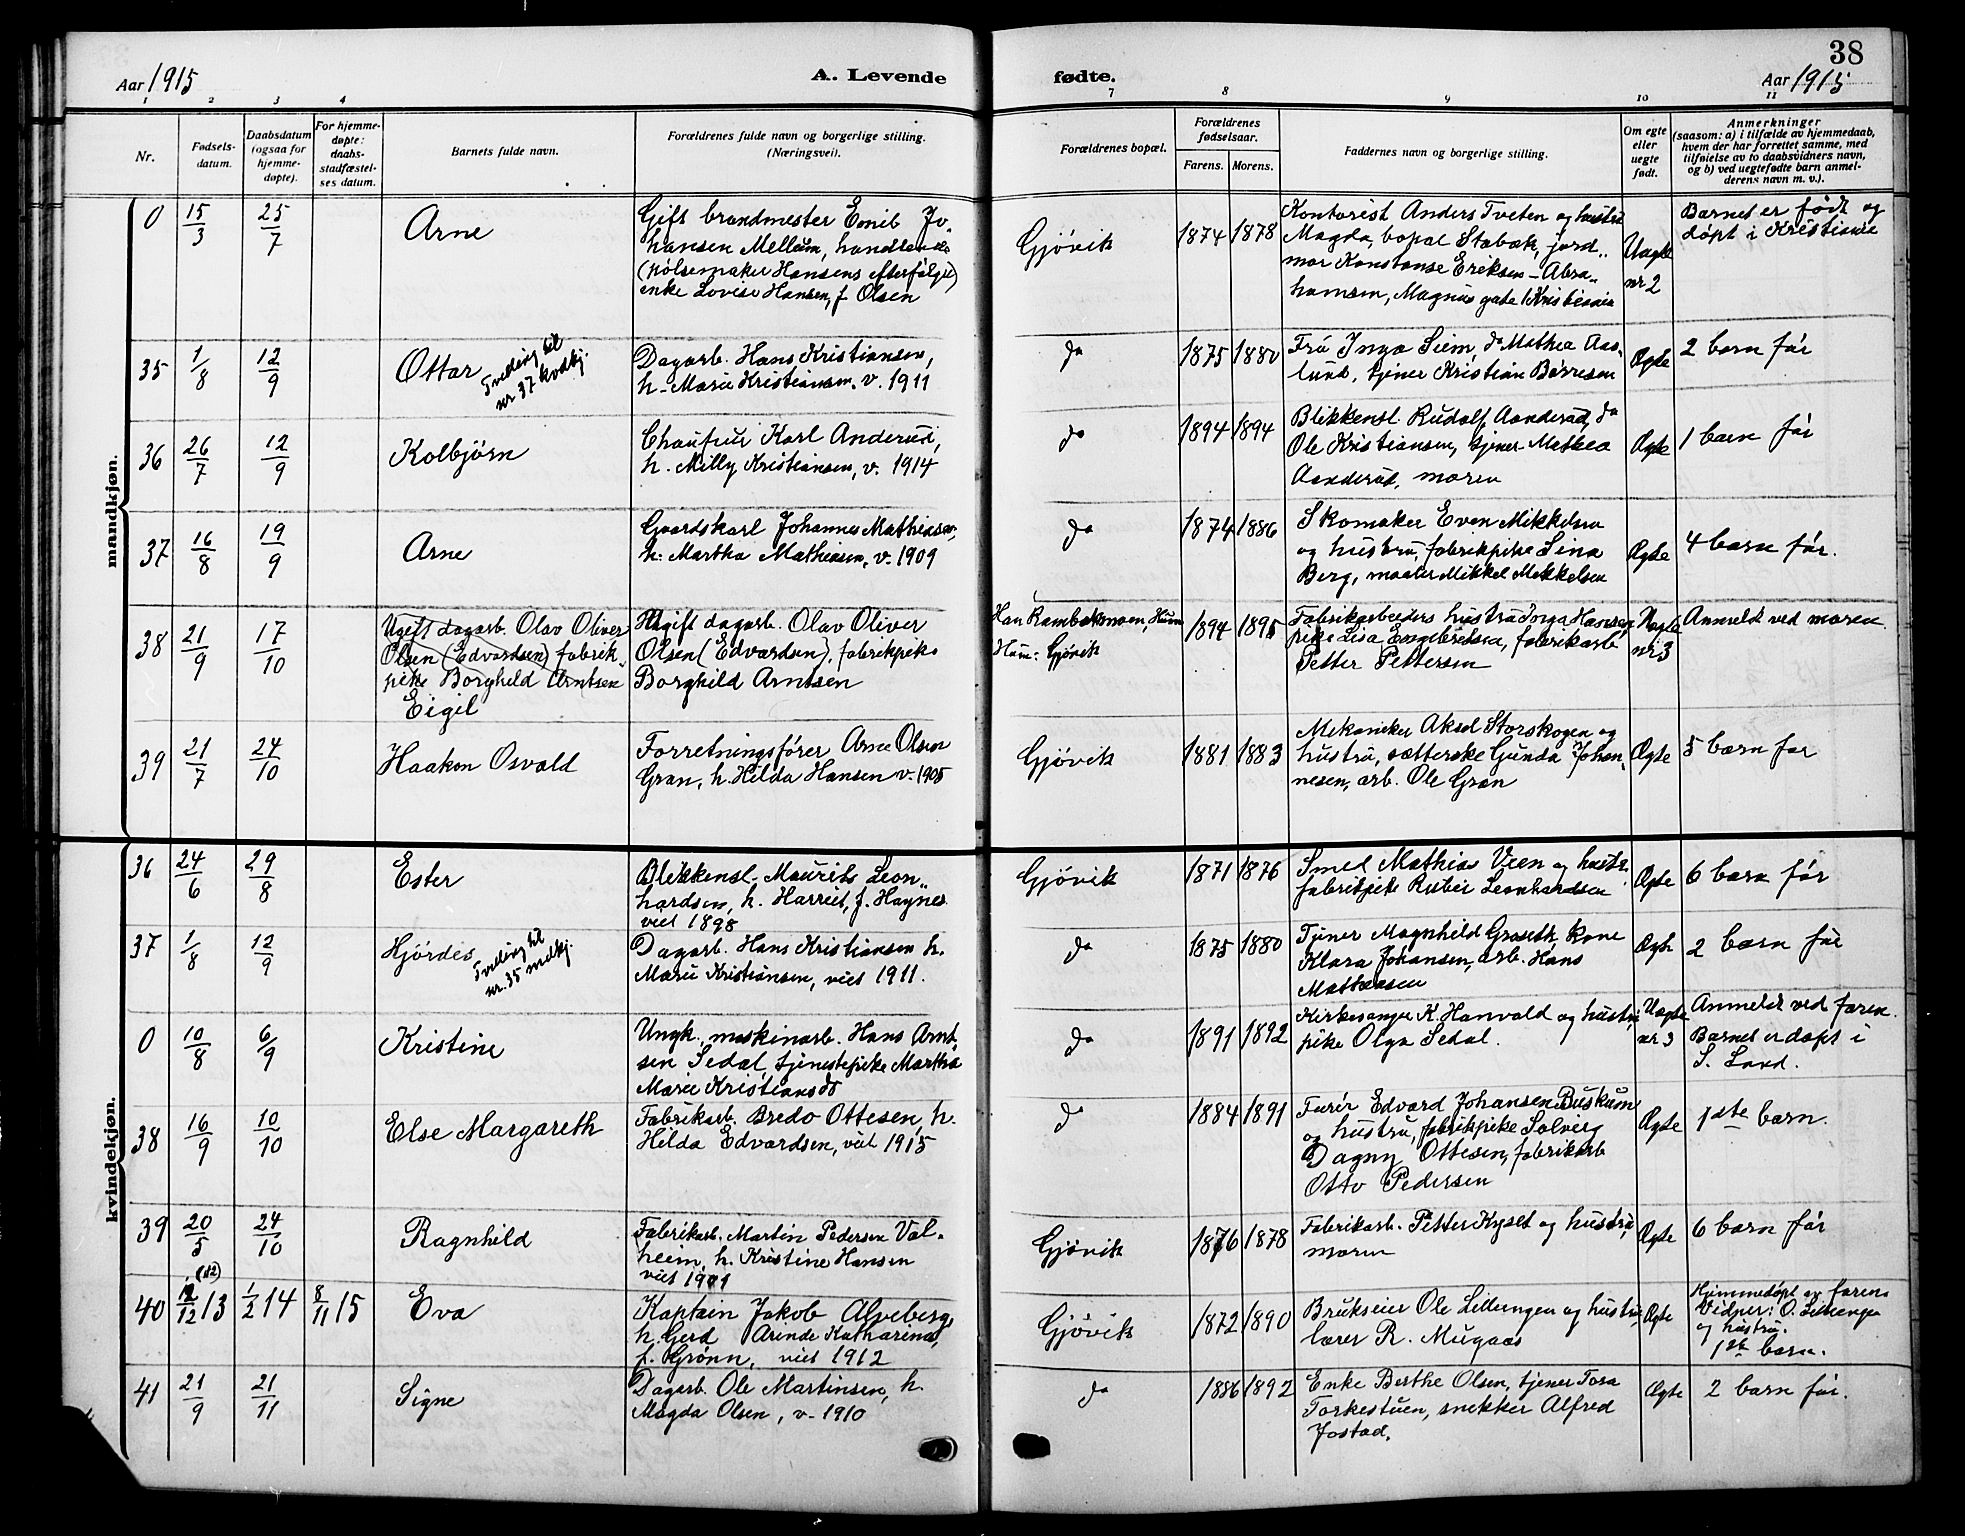 38
Aar 1915
A. Levende
fødte.
Aar 1915
1 2 3 4
7 8 9 10 11
Nr.
Fødsels-
datum.
Daabsdatum
(ogsaa for
hjemme-
døpte).
For hjemme-
døpte:
daabs-
stadfæstel-
ses datum.
Barnets fulde navn.
Forældrenes fulde navn og borgerlige stilling.
(Næringsvei).
Forældrenes bopæl.
Forældrenes
fødselsaar.
Farens. Morens.
Faddernes navn og borgerlige stilling.
Om egte
eller
uegte
født.
Anmerkninger
(saasom: a) i tilfælde av hjemmedaab,
hvem der har forrettet samme, med
tilføielse av to daabsvidners navn,
og b) ved uegtefødte barn anmel-
derens navn m. v.).
mandkjøn.
0
15/3
25/7
Arne
Gift brandmester Emil Jo-
hansen Mellum, handlende
(pölsemaker Hansens efterfölger)
enke Lovise Hansen, f. Olsen
Gjövik
1874 1878
Kontorist Anders Tveten og hustru
Magda, bopæl Stabæk, jord-
mor Konstanse Eriksen-Abra-
hamsen, Magnus gate 1 Kristiania
Uægte
nr 2
Barnet er födt og
döpt i Kristiania
35
1/8
12/9
Ottar
Tvilling til
nr 37 kvdkj.
Dagarb. Hans Kristiansen,
h. Marie Kristiansen, v. 1911
do
1875 1880
Fru Inga Siem, do Mathea Aas-
lund, tjener Kristian Börresen
Ægte
2 barn för
36
26/7
12/9
Kolbjörn
Chauffur Karl Anderud,
h. Milly Kristiansen, v. 1914
do
1894 1894
Blikkensl. Rudolf Aanderud, do
Ole Kristiansen, tjener Mathea
Aanderud, moren
Ægte
1 barn för
37
16/8
19/9
Arne
Gaardskarl Johannes Mathiesen,
h. Martha Mathiesen, v. 1909
do
1874 1886
Skomaker Even Mikkelsen
og hustru, fabrikpike Lina
Berg, maaler Mikkel Mikkelsen
Ægte
4 barn för.
38
21/9
17/10
Ugift dagarb. Olav Oliver
Olsen (Edvardsen) fabrik-
pike Borghild Arntsen
Eigil
Ugift dagarb. Olav Oliver
Olsen (Edvardsen), fabrikpike
Borghild Arntsen
Hun: Gjövik
1894 1895
Fabrikarbeiders hustru Inga Hansen,
pike Lisa Engebretsen, fabrikarb
Petter Pettersen
Uægte
nr 3
Anmeldt ved moren
39
21/7
24/10
Haakon Osvald
Forretningsförer Arne Olsen
Gran, h. Hilda Hansen v. 1905
Gjövik
1881 1883
Mekaniker Aksel Storskogen og
hustru, sætterske Gunda Johan-
nesen, arb. Ole Gran
Ægte
5 barn för
kvindekjøn.
36
24/6
29/8
Ester
Blikkensl. Maurits Leon-
hardsen, h. Harriet, f. Haynes
viet 1898
Gjövik
1871 1876
Smed Mathias Veen og hustr.
fabrikpike Leonhardsen
Ægte
6 barn för
37
1/8
12/9
Hjördis
Tvilling til
nr. 35 mdkj.
Dagarb. Hans Kristiansen h.
Marie Kristiansen, viet 1911.
do
1875 1880
Tjener Magnhild Graseth, kone
Klara Johansen, arb. Hans
Mathiasen
Ægte
2 barn för
0
10/8
6/9
Kristine
Ungk. maskinarb. Hans Arnt-
sen Sedal, tjenestepike Martha
Marie Kristiansdt
do
1891 1892
Kirkesanger K. Hanvold og hustru,
pike Olga Sedal.
Uægte
nr 3
Anmeldt ved faren.
Barnet er döpt i
S. Land.
38
16/9
10/10
Else Margareth
Fabrikarb. Bredo Ottesen, h.
Hilda Edvardsen, viet 1915
do
1884 1891
Furér Edvard Johansen Buskum
og hustru, fabrikpike Solveig
Dagny Ottesen, fabrikarb
Otto Pedersen
Ægte
1ste barn.
39
20/5
24/10
Ragnhild
Fabrikarb. Martin Pedersen Val-
heim, h. Kristine Hansen
viet 1901
Gjövik
1876 1878
Fabrikarb. Petter Kyset og hustru,
moren
Ægte
6 barn för
40
(12)
12/12 13
1/2 14
8/11 15
Eva
Kaptein Jakob Alveberg,
h. Gerd Arende Katharina,
f. Grönn, viet 1912
Gjövik
1872 1890
Brukseier Ole Lillungen og hustru,
lærer R. Mugaas
Ægte
Hjemmedöpt av faren
Vidner: O. Lillungen
og hustru.
1ste barn.
41
21/9
21/11
Signe
Dagarb. Ole Martinsen, h.
Magda Olsen, v. 1910
do
1886 1892
Enke Berthe Olsen, tjener Tora
Torkestuen, snekker Alfred
Jostad.
Ægte
2 barn för.